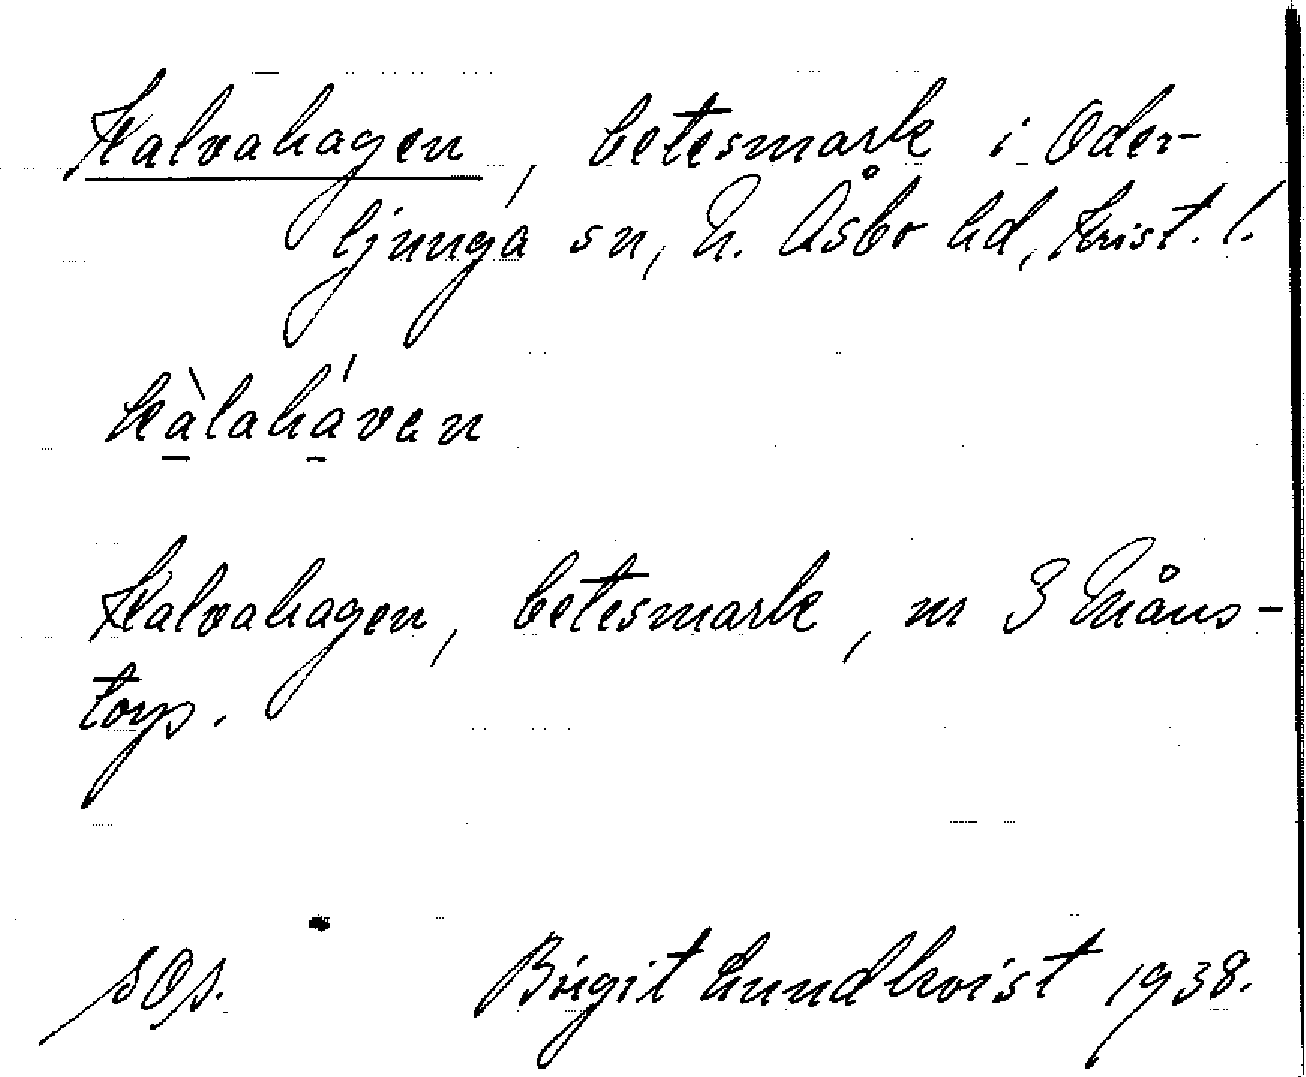 Kalvahagen, betesmark i Oder-
ljunga sn, N. Åsbo hd, Krist. l.
kàlaháven
Kalvahagen, betesmark, nr 3 Måns-
torp.
SOp. Birgit Lundkvist 1938.